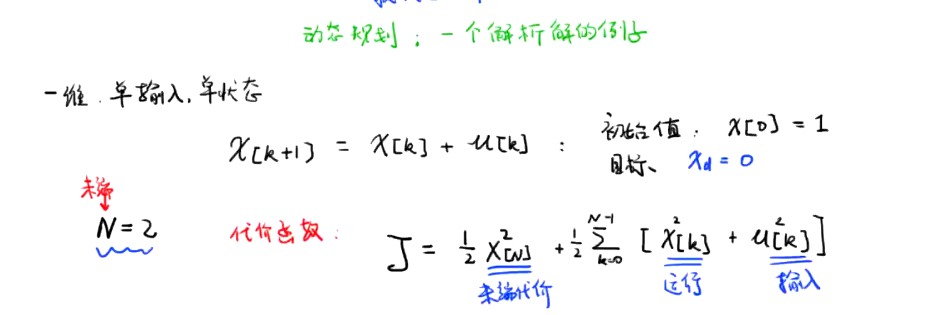 动态规划；一个解析解的例子
一维．单输入，单状态
X[k+1] = X[k] + u[k] ： 初始值： X[0] = 1
目标、 Xd = 0
末端
N = 2
代价函数：
J = 1/2 X²[N] + 1/2 ∑_{k=0}^{N-1} [ X²[k] + u²[k] ]
末端代价 运行 输入